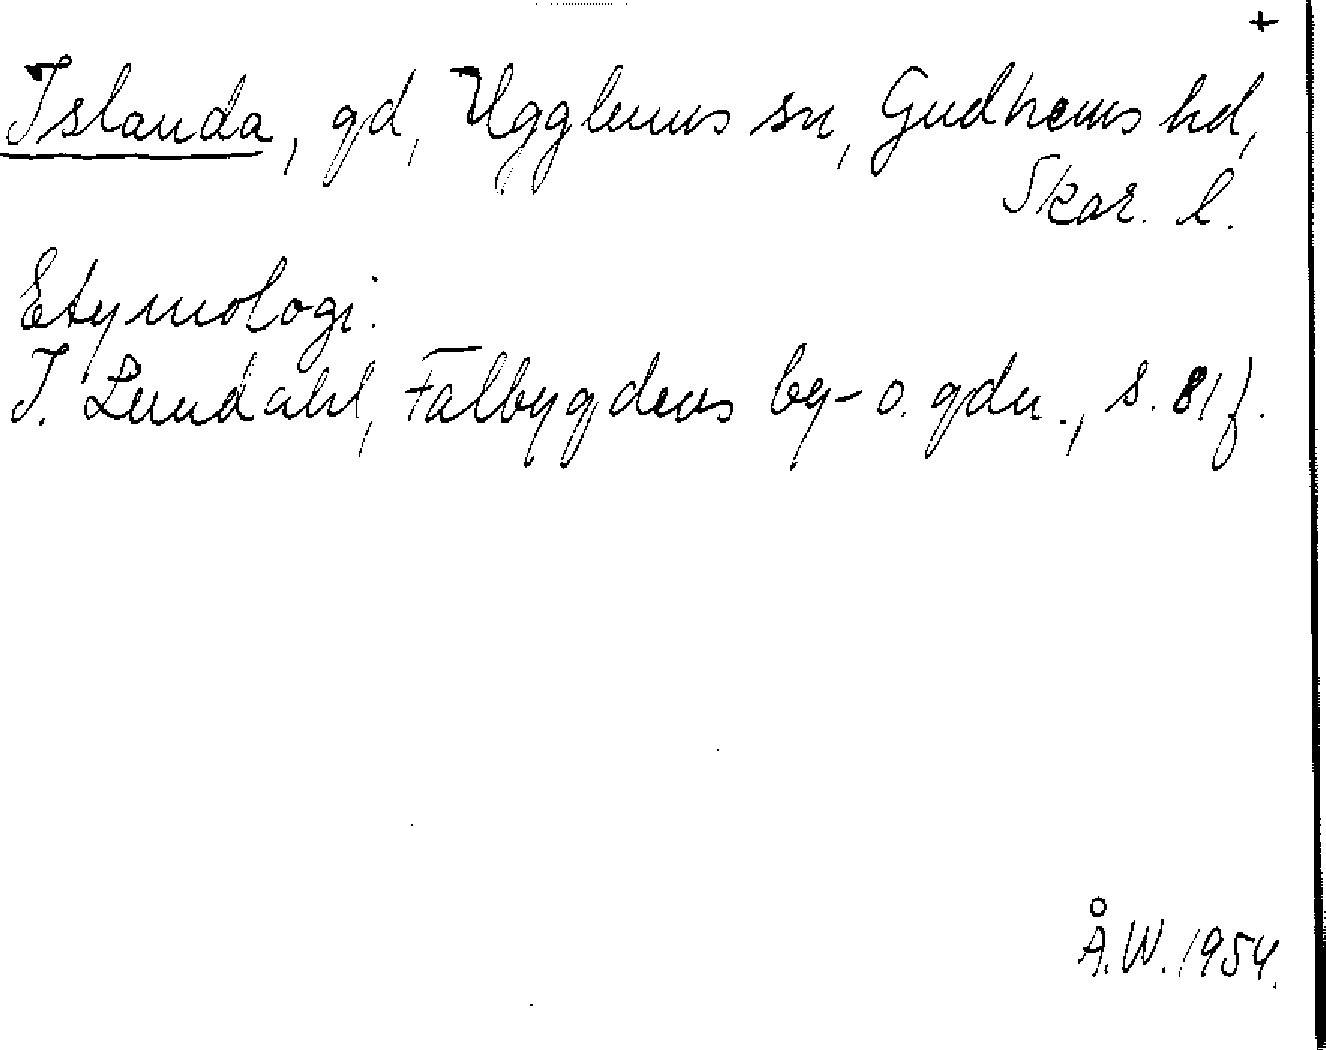 +
Islanda, gd, Ugglums sn, Gudhems hd,
Skar. l.
Etymologi.
I. Lundahl, Falbygdens by- o. gdn., s. 81 f.
Å.W. 1954.